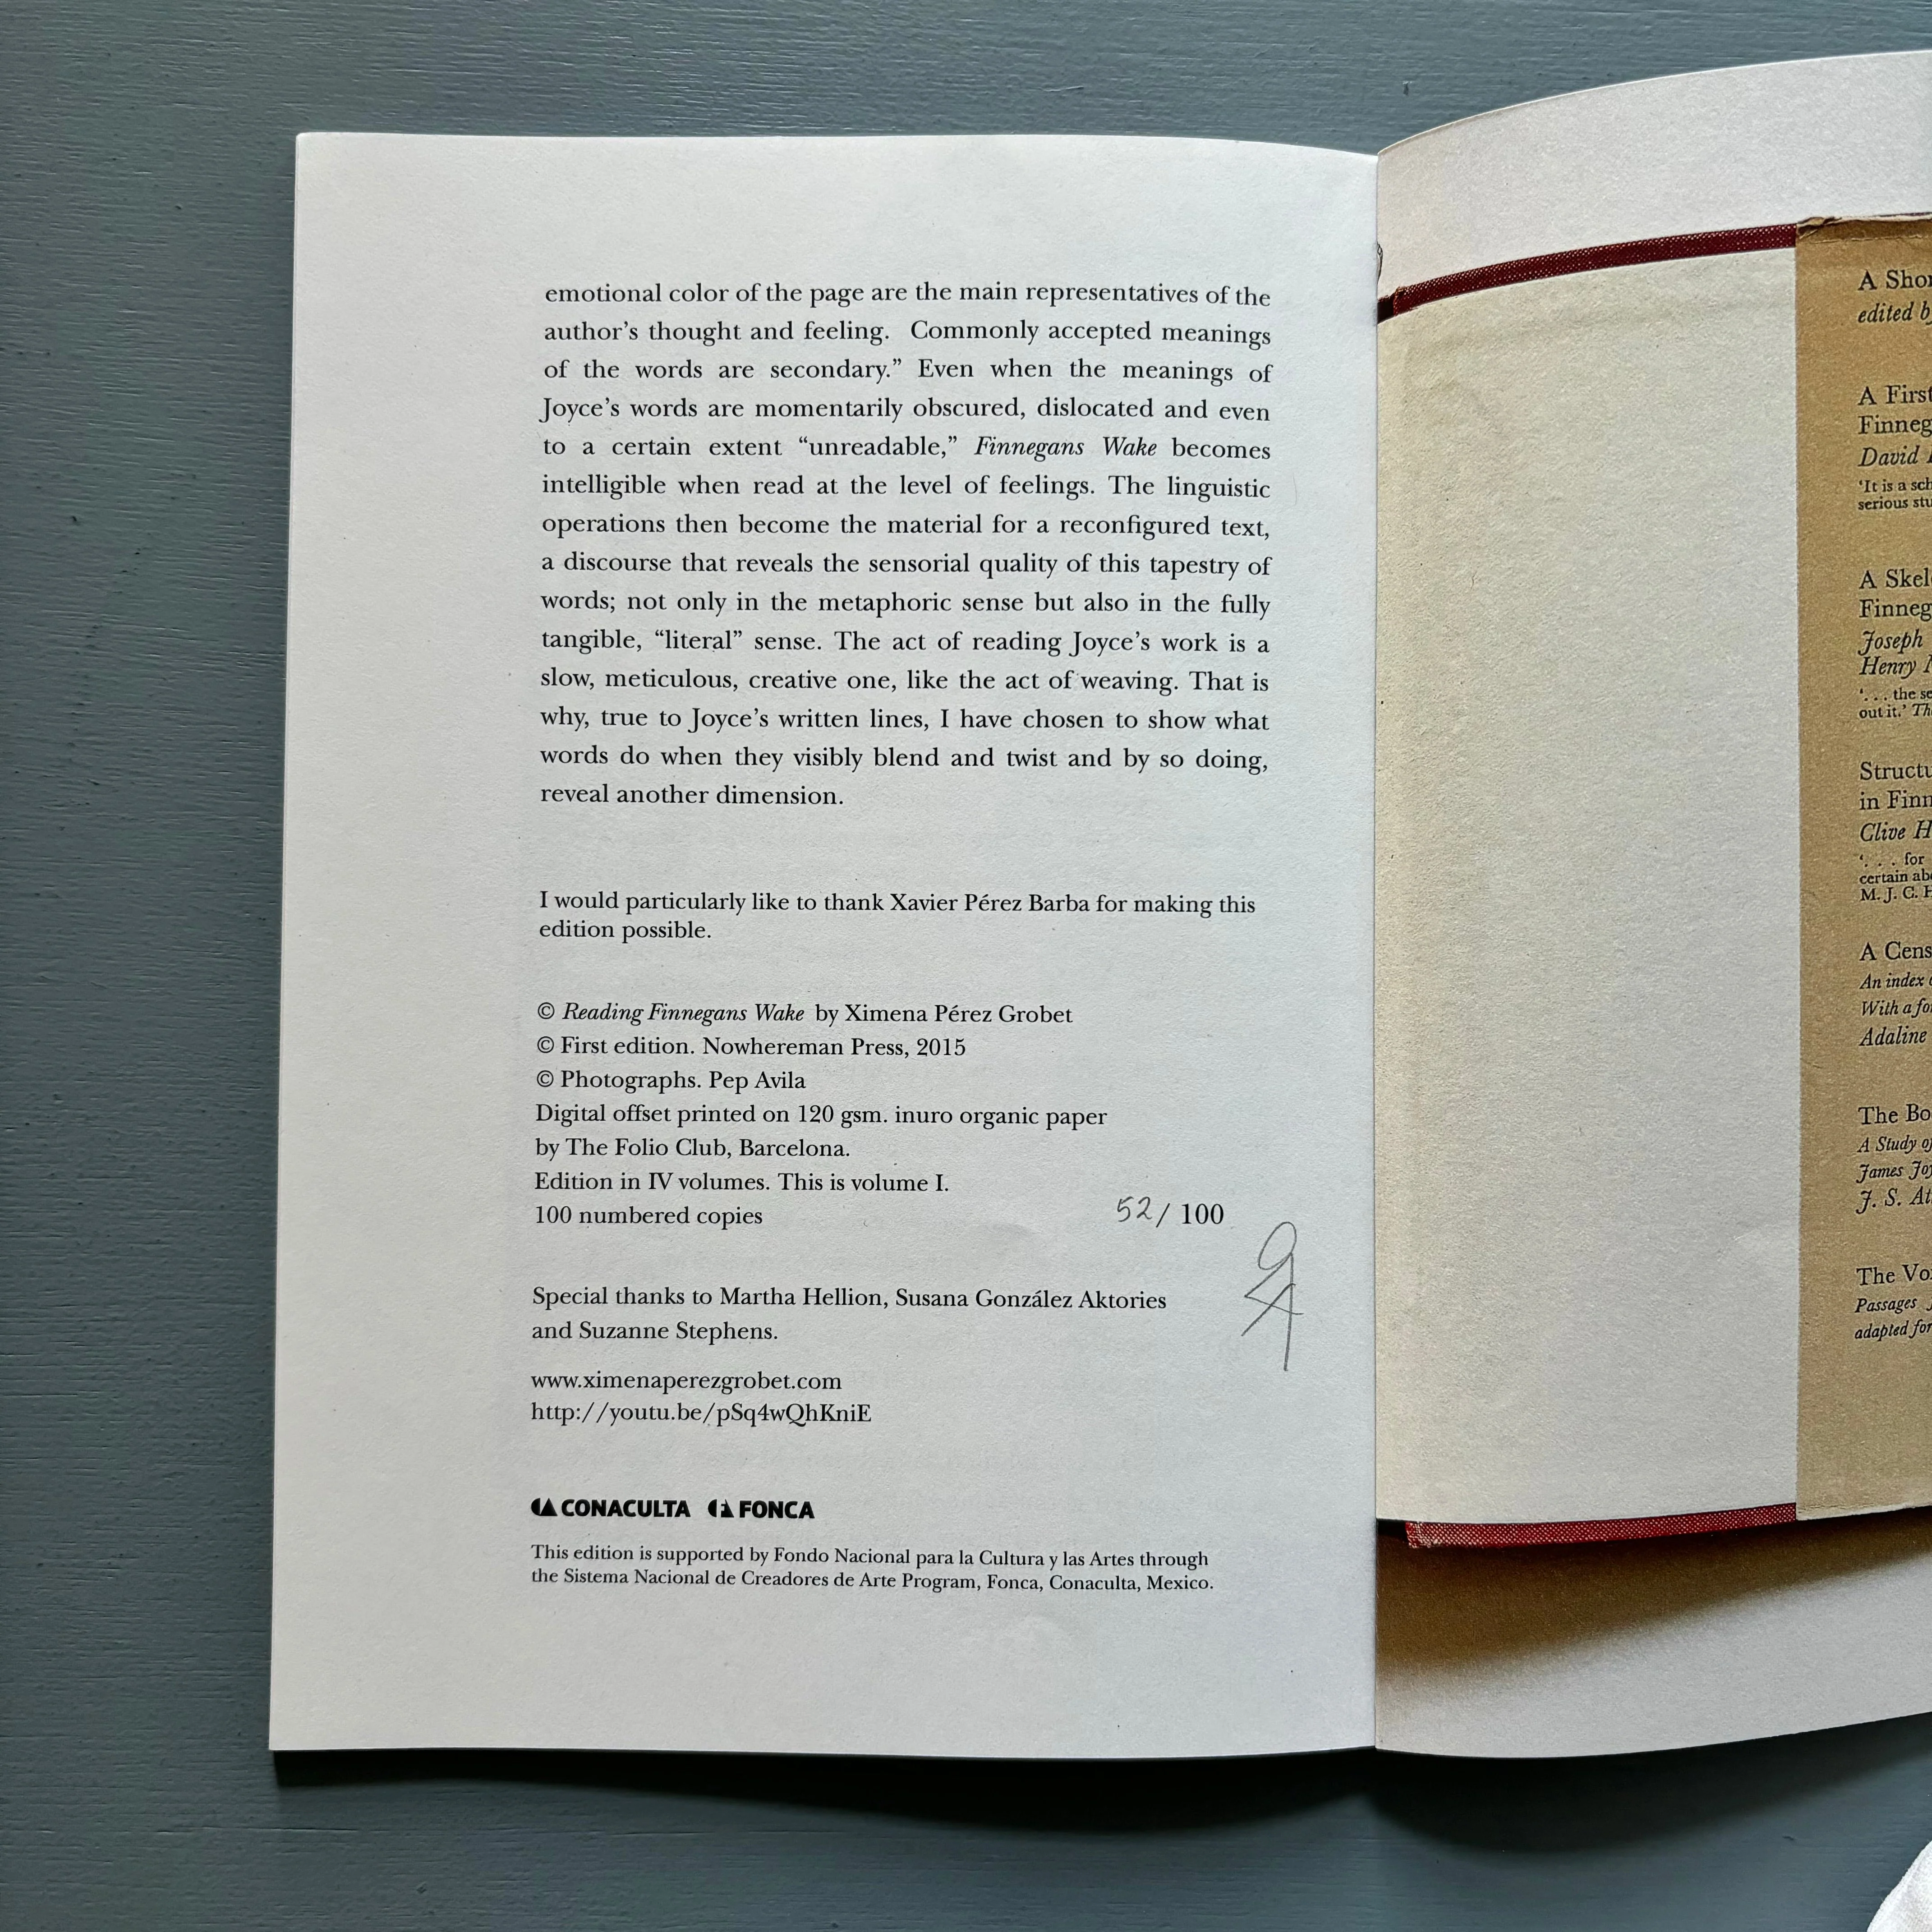 emotional color of the page are the main representatives of the
author’s thought and feeling.  Commonly accepted meanings
of the words are secondary.” Even when the meanings of
Joyce’s words are momentarily obscured, dislocated and even
to a certain extent “unreadable,” Finnegans Wake becomes
intelligible when read at the level of feelings. The linguistic
operations then become the material for a reconfigured text,
a discourse that reveals the sensorial quality of this tapestry of
words; not only in the metaphoric sense but also in the fully
tangible, “literal” sense. The act of reading Joyce’s work is a
slow, meticulous, creative one, like the act of weaving. That is
why, true to Joyce’s written lines, I have chosen to show what
words do when they visibly blend and twist and by so doing,
reveal another dimension.
I would particularly like to thank Xavier Pérez Barba for making this
edition possible.
© Reading Finnegans Wake by Ximena Pérez Grobet
© First edition. Nowhereman Press, 2015
© Photographs. Pep Avila
Digital offset printed on 120 gsm. inuro organic paper
by The Folio Club, Barcelona.
Edition in IV volumes. This is volume I.
100 numbered copies 52 / 100
Special thanks to Martha Hellion, Susana González Aktories
and Suzanne Stephens.
www.ximenaperezgrobet.com
http://youtu.be/pSq4wQhKniE
CONACULTA FONCA
This edition is supported by Fondo Nacional para la Cultura y las Artes through
the Sistema Nacional de Creadores de Arte Program, Fonca, Conaculta, Mexico.
A Shor
edited b
A First
Finneg
David
‘It is a sch
serious stu
A Skel
Finneg
Joseph
Henry
‘. . . the se
out it.’ Th
Structu
in Finn
Clive H
‘. . . for
certain abo
M. J. C. H
A Cens
An index
With a fo
Adaline
The Bo
A Study of
James Joy
J. S. At
The Vo
Passages
adapted for